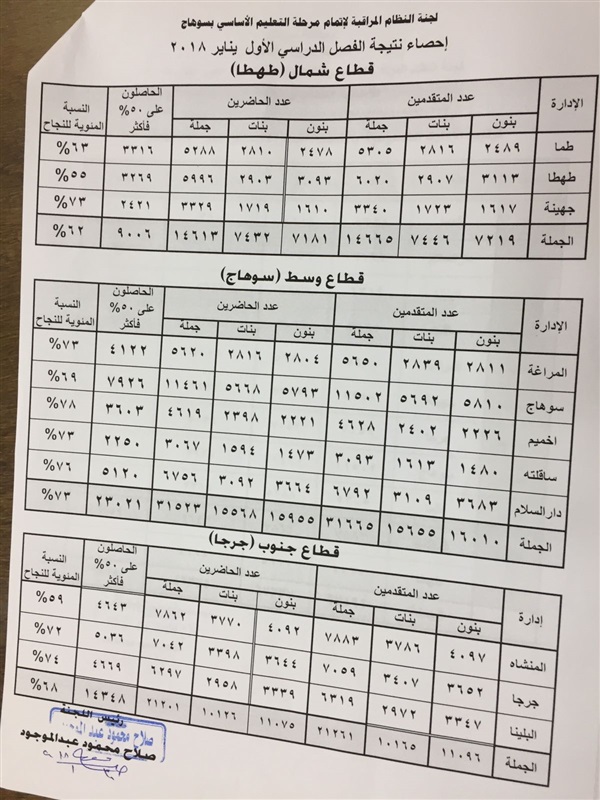 لجنة النظام المراقبة لإتمام مرحلة التعليم الأساسي بسوهاج
إحصاء نتيجة الفصل الدراسي الأول يناير ٢٠١٨
قطاع شمال (طهطا)
الإدارة | عدد المتقدمين | عدد الحاضرين | الحاصلون على ٥٠% فأكثر | النسبة المئوية للنجاح
بنون | بنات | جملة | بنون | بنات | جملة
طما | ٢٤٨٩ | ٢٨١٦ | ٥٣٠٥ | ٢٤٧٨ | ٢٨١٠ | ٥٢٨٨ | ٣٣١٦ | ٦٣%
طهطا | ٣١١٣ | ٢٩٠٧ | ٦٠٢٠ | ٣٠٩٣ | ٢٩٠٣ | ٥٩٩٦ | ٣٢٦٩ | ٥٥%
جهينة | ١٦١٧ | ١٧٢٣ | ٣٣٤٠ | ١٦١٠ | ١٧١٩ | ٣٣٢٩ | ٢٤٢١ | ٧٣%
الجملة | ٧٢١٩ | ٧٤٤٦ | ١٤٦٦٥ | ٧١٨١ | ٧٤٣٢ | ١٤٦١٣ | ٩٠٠٦ | ٦٢%
قطاع وسط (سوهاج)
الإدارة | عدد المتقدمين | عدد الحاضرين | الحاصلون على ٥٠% فأكثر | النسبة المئوية للنجاح
بنون | بنات | جملة | بنون | بنات | جملة
المراغة | ٢٨١١ | ٢٨٣٩ | ٥٦٥٠ | ٢٨٠٤ | ٢٨١٦ | ٥٦٢٠ | ٤١٢٢ | ٧٣%
سوهاج | ٥٨١٠ | ٥٦٩٢ | ١١٥٠٢ | ٥٧٩٣ | ٥٦٦٨ | ١١٤٦١ | ٧٩٢٦ | ٦٩%
اخميم | ٢٢٢٦ | ٢٤٠٢ | ٤٦٢٨ | ٢٢٢١ | ٢٣٩٨ | ٤٦١٩ | ٣٦٠٣ | ٧٨%
ساقلته | ١٤٨٠ | ١٦١٣ | ٣٠٩٣ | ١٤٧٣ | ١٥٩٤ | ٣٠٦٧ | ٢٢٥٠ | ٧٣%
دارالسلام | ٣٦٨٣ | ٣١٠٩ | ٦٧٩٢ | ٣٦٦٤ | ٣٠٩٢ | ٦٧٥٦ | ٥١٢٠ | ٧٦%
الجملة | ١٦٠١٠ | ١٥٦٥٥ | ٣١٦٦٥ | ١٥٩٥٥ | ١٥٥٦٨ | ٣١٥٢٣ | ٢٣٠٢١ | ٧٣%
قطاع جنوب (جرجا)
إدارة | عدد المتقدمين | عدد الحاضرين | الحاصلون على ٥٠% فأكثر | النسبة المئوية للنجاح
بنون | بنات | جملة | بنون | بنات | جملة
المنشاه | ٤٠٩٧ | ٣٧٨٦ | ٧٨٨٣ | ٤٠٩٢ | ٣٧٧٠ | ٧٨٦٢ | ٤٦٤٣ | ٥٩%
جرجا | ٣٦٥٢ | ٣٤٠٧ | ٧٠٥٩ | ٣٦٤٤ | ٣٣٩٨ | ٧٠٤٢ | ٥٠٣٦ | ٧٢%
البلينا | ٣٣٤٧ | ٢٩٧٢ | ٦٣١٩ | ٣٣٣٩ | ٢٩٥٨ | ٦٢٩٧ | ٤٦٦٩ | ٧٤%
الجملة | ١١٠٩٦ | ١٠١٦٥ | ٢١٢٦١ | ١١٠٧٥ | ١٠١٢٦ | ٢١٢٠١ | ١٤٣٤٨ | ٦٨%
رئيس اللجنة
صلاح محمود عبد الموجود
صلاح محمود عبدالموجود